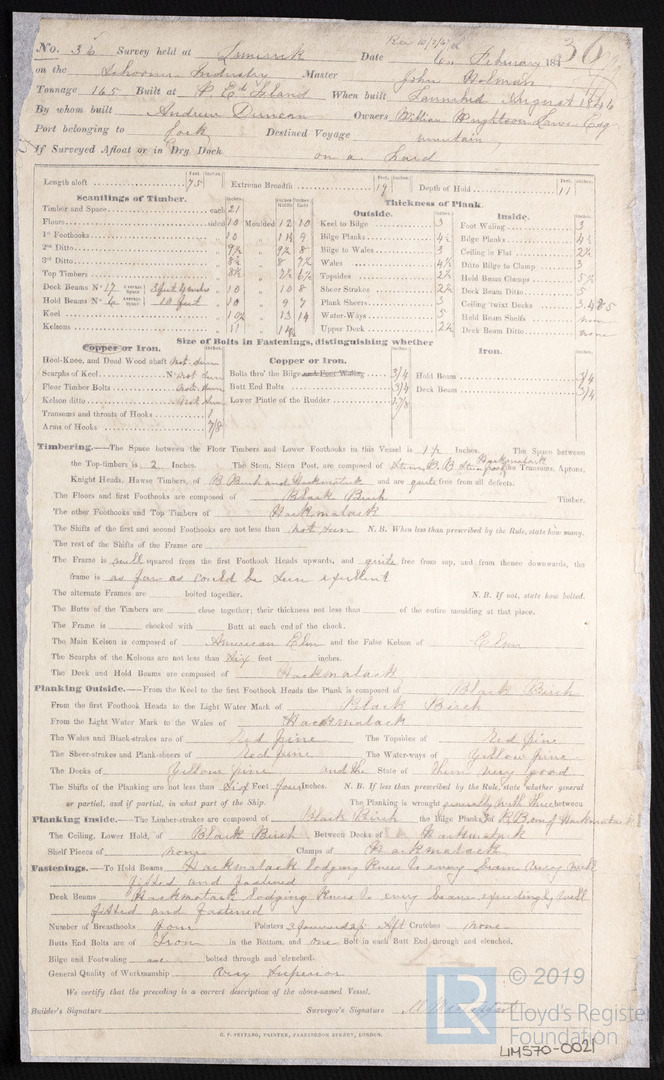 Rec 10/2/47
No. 36 Survey held at Limerick Date 6th February 184 36
on the Schooner Industry Master John Holman
Tonnage 165 Built at P Ed Island When built Launched August 1846
By whom built Andrew Duncan Owners William Law Esq
Port belonging to Cork Destined Voyage uncertain
If Surveyed Afloat or in Dry Dock on a hard
Length aloft 75 Extreme Breadth 19 Depth of Hold 11
Scantlings of Timber. Thickness of Plank.
Outside. Inside.
Timber and Space each 21 Keel to Bilge 3 Foot Waling 3
Floors sided 10 Moulded 12 10 Bilge Planks 4½ Bilge Planks 4½
1st Foothooks 10 11½ 9 Bilge to Wales 3 Ceiling in Flat 2½
2nd Ditto 9½ 9½ 8 Wales 4½ Ditto Bilge to Clamp 3
3rd Ditto 8½ 8 7½ Topsides 2½ Hold Beam Clamps 5½
Top Timbers 8½ 7½ 6½ Sheer Strakes 2½ Deck Beam Ditto 5
Deck Beams No 17 Average Space 3 feet 4 inches 10 10 8 Plank Sheers 3 Ceiling 'twixt Decks 3.4 & 5
Hold Beams No 6 Average Space 10 feet 10 9 7 Water-Ways 5 Hold Beam Shelfs none
Keel 10½ 13 14 Upper Deck 2½ Deck Beam Ditto none
Kelsons 11 14
Size of Bolts in Fastenings, distinguishing whether
Copper or Iron. Copper or Iron. Iron.
Heel-Knee, and Dead Wood abaft not seen
Scarphs of Keel No not seen Bolts thro' the Bilge and Foot Waling 3/4 Hold Beam 3/4
Floor Timber Bolts not seen Butt End Bolts 3/4 Deck Beam 3/4
Kelson ditto not seen Lower Pintle of the Rudder 1 7/8
Transoms and throats of Hooks 1
Arms of Hooks 7/8
Timbering.—The Space between the Floor Timbers and Lower Foothooks in this Vessel is 1½ Inches. The Space between
the Top-timbers is 2 Inches. The Stem, Stern Post, are composed of Stem B B Stern post Hackmatack the Transoms, Aprons,
Knight Heads, Hawse Timbers, of B Birch and Hackmatack and are quite free from all defects.
The Floors and first Foothooks are composed of Black Birch Timber.
The other Foothooks and Top Timbers of Hackmatack
The Shifts of the first and second Foothooks are not less than not seen N. B. When less than prescribed by the Rule, state how many.
The rest of the Shifts of the Frame are
The Frame is well squared from the first Foothook Heads upwards, and quite free from sap, and from thence downwards, the
frame is as far as could be seen excellent
The alternate Frames are bolted together. N. B. If not, state how bolted.
The Butts of the Timbers are close together; their thickness not less than of the entire moulding at that place.
The Frame is chocked with Butt at each end of the chock.
The Main Kelson is composed of American Elm and the False Kelson of Elm
The Scarphs of the Kelsons are not less than six feet inches.
The Deck and Hold Beams are composed of Hackmatack
Planking Outside.—From the Keel to the first Foothook Heads the Plank is composed of Black Birch
From the first Foothook Heads to the Light Water Mark of Black Birch
From the Light Water Mark to the Wales of Hackmatack
The Wales and Black-strakes are of Red pine The Topsides of Red pine
The Sheer-strakes and Plank-sheers of Red pine The Water-ways of Yellow pine
The Decks of Yellow pine and the State of them very good
The Shifts of the Planking are not less than six Feet four Inches. N. B. If less than prescribed by the Rule, state whether general
or partial, and if partial, in what part of the Ship. The Planking is wrought generally with three between
Planking Inside.—The Limber-strakes are composed of Black Birch the Bilge Planks of B.B. one of Hackmatack
The Ceiling, Lower Hold, of Black Birch Between Decks of Hackmatack
Shelf Pieces of none Clamps of Hackmatack
Fastenings.—To Hold Beams Hackmatack lodging knees to every beam very well
fitted and fastened
Deck Beams Hackmatack lodging knees to every beam exceedingly well
fitted and fastened
Number of Breasthooks Four Pointers 3 forward & Aft Crutches none
Butts End Bolts are of Iron in the Bottom, and one Bolt in each Butt End through and clenched.
Bilge and Footwaling are bolted through and clenched.
General Quality of Workmanship Very Superior
We certify that the preceding is a correct description of the above-named Vessel.
Builder's Signature Surveyor's Signature
G. F. SEYFANG, PRINTER, FARRINGDON STREET, LONDON.
LR
© 2019
Lloyd's Register
Foundation
LIM570-0021